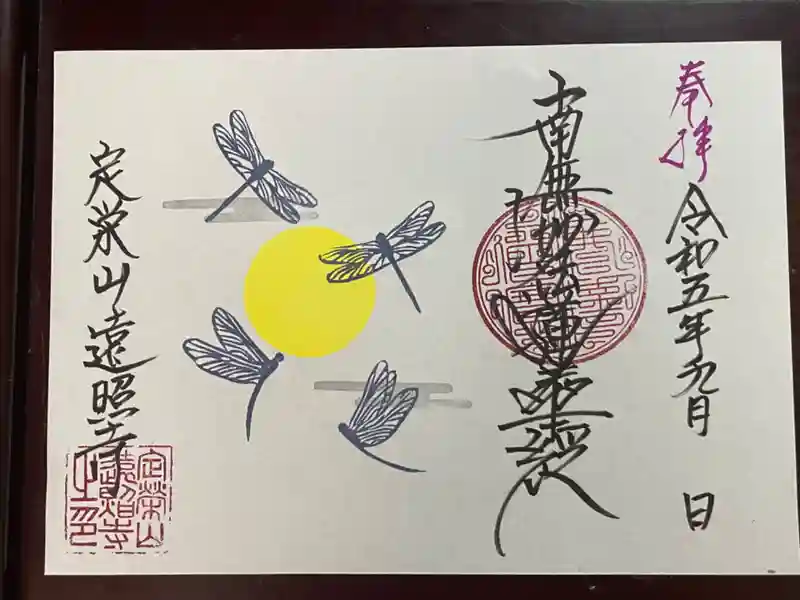 奉拝
令和五年九月 日
南無妙法蓮華経
定栄山遠照寺
定榮山
遠照寺
之印